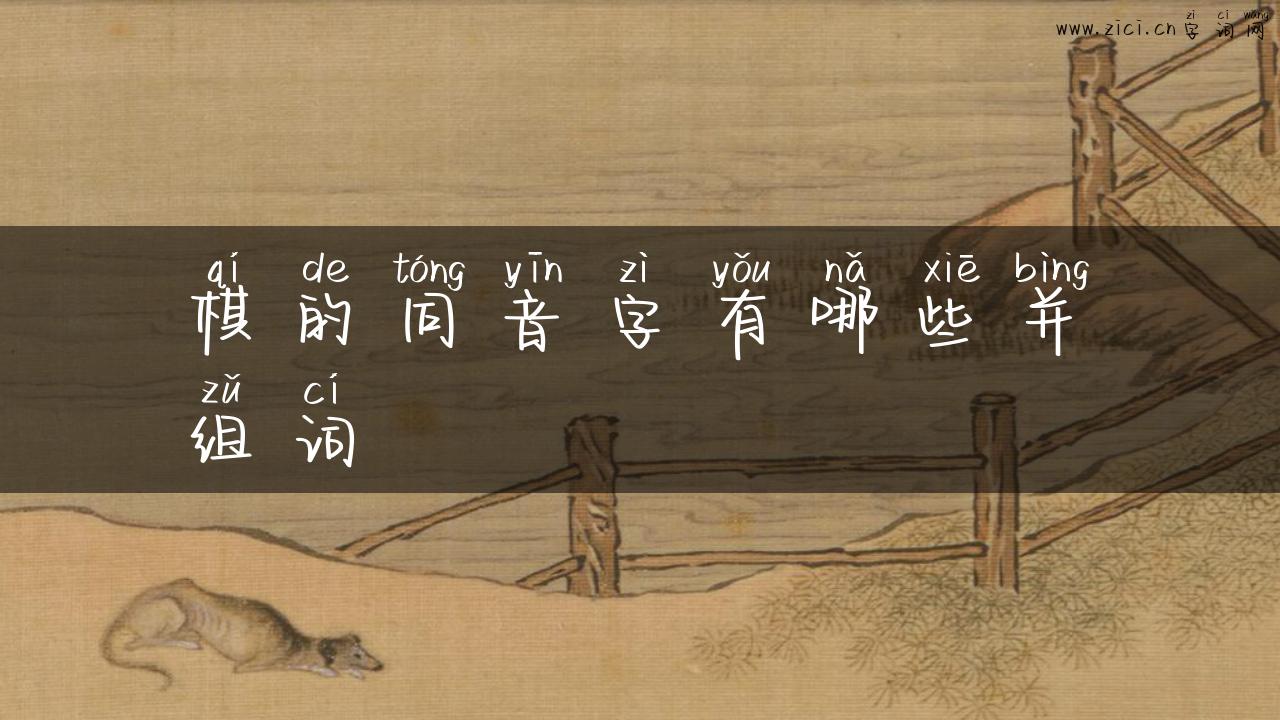 zì cí wǎng
www.zici.cn字词网
qí de tóng yīn zì yǒu nǎ xiē bìng
棋的同音字有哪些并
zǔ cí
组词